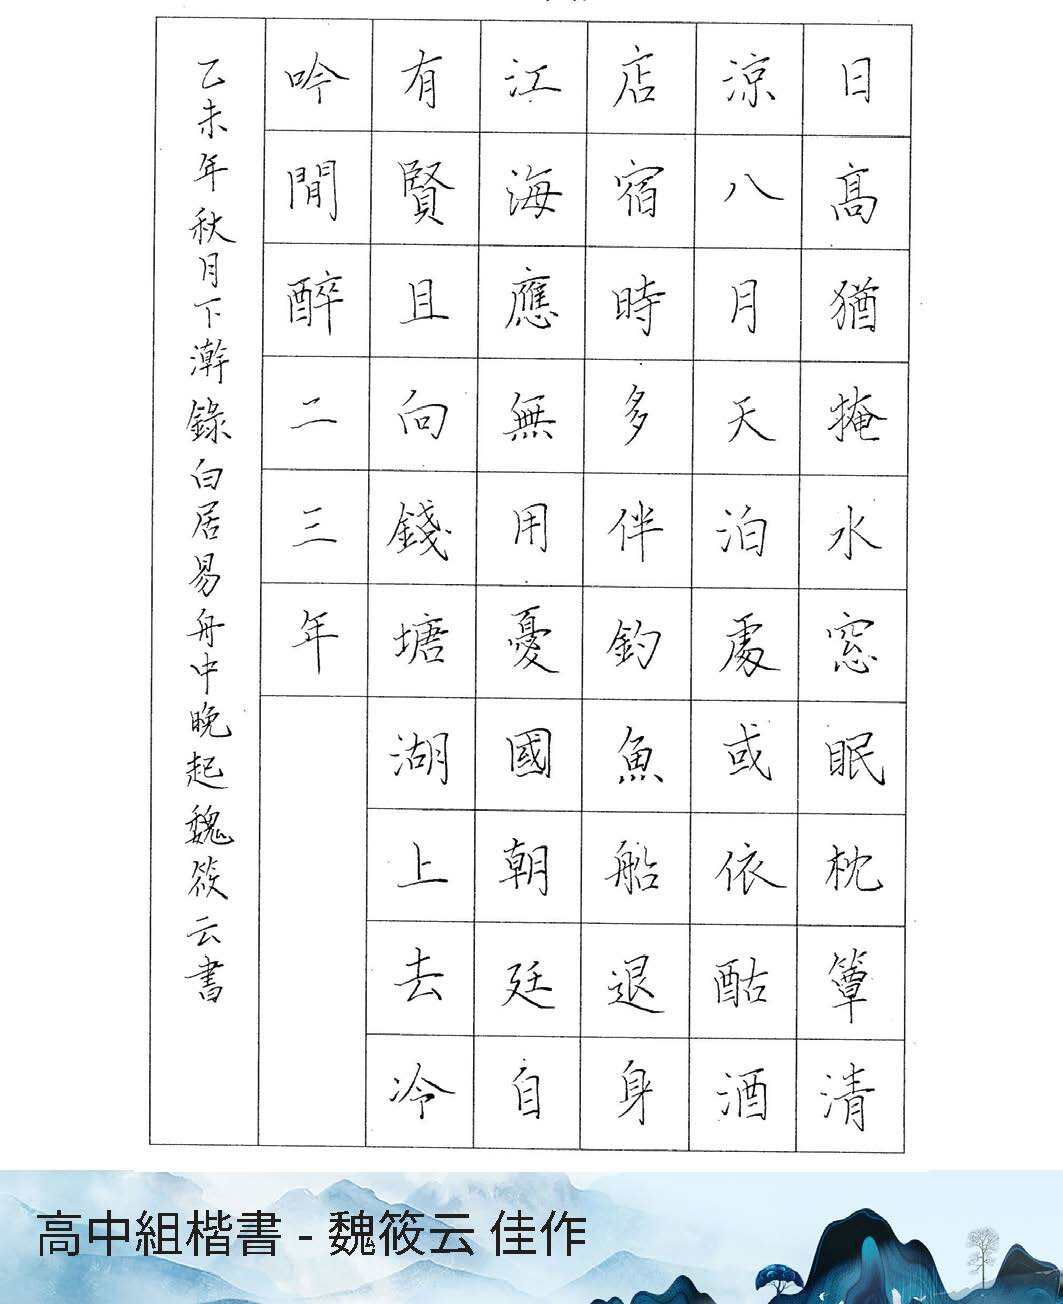 日高猶掩水窓眠枕簟清
涼八月天泊處或依酤酒
店宿時多伴釣魚船退身
江海應無用憂國朝廷自
有賢且向錢塘湖上去冷
吟閒醉二三年
乙未年秋月下澣錄白居易舟中晚起魏筱云書
高中組楷書 - 魏筱云 佳作